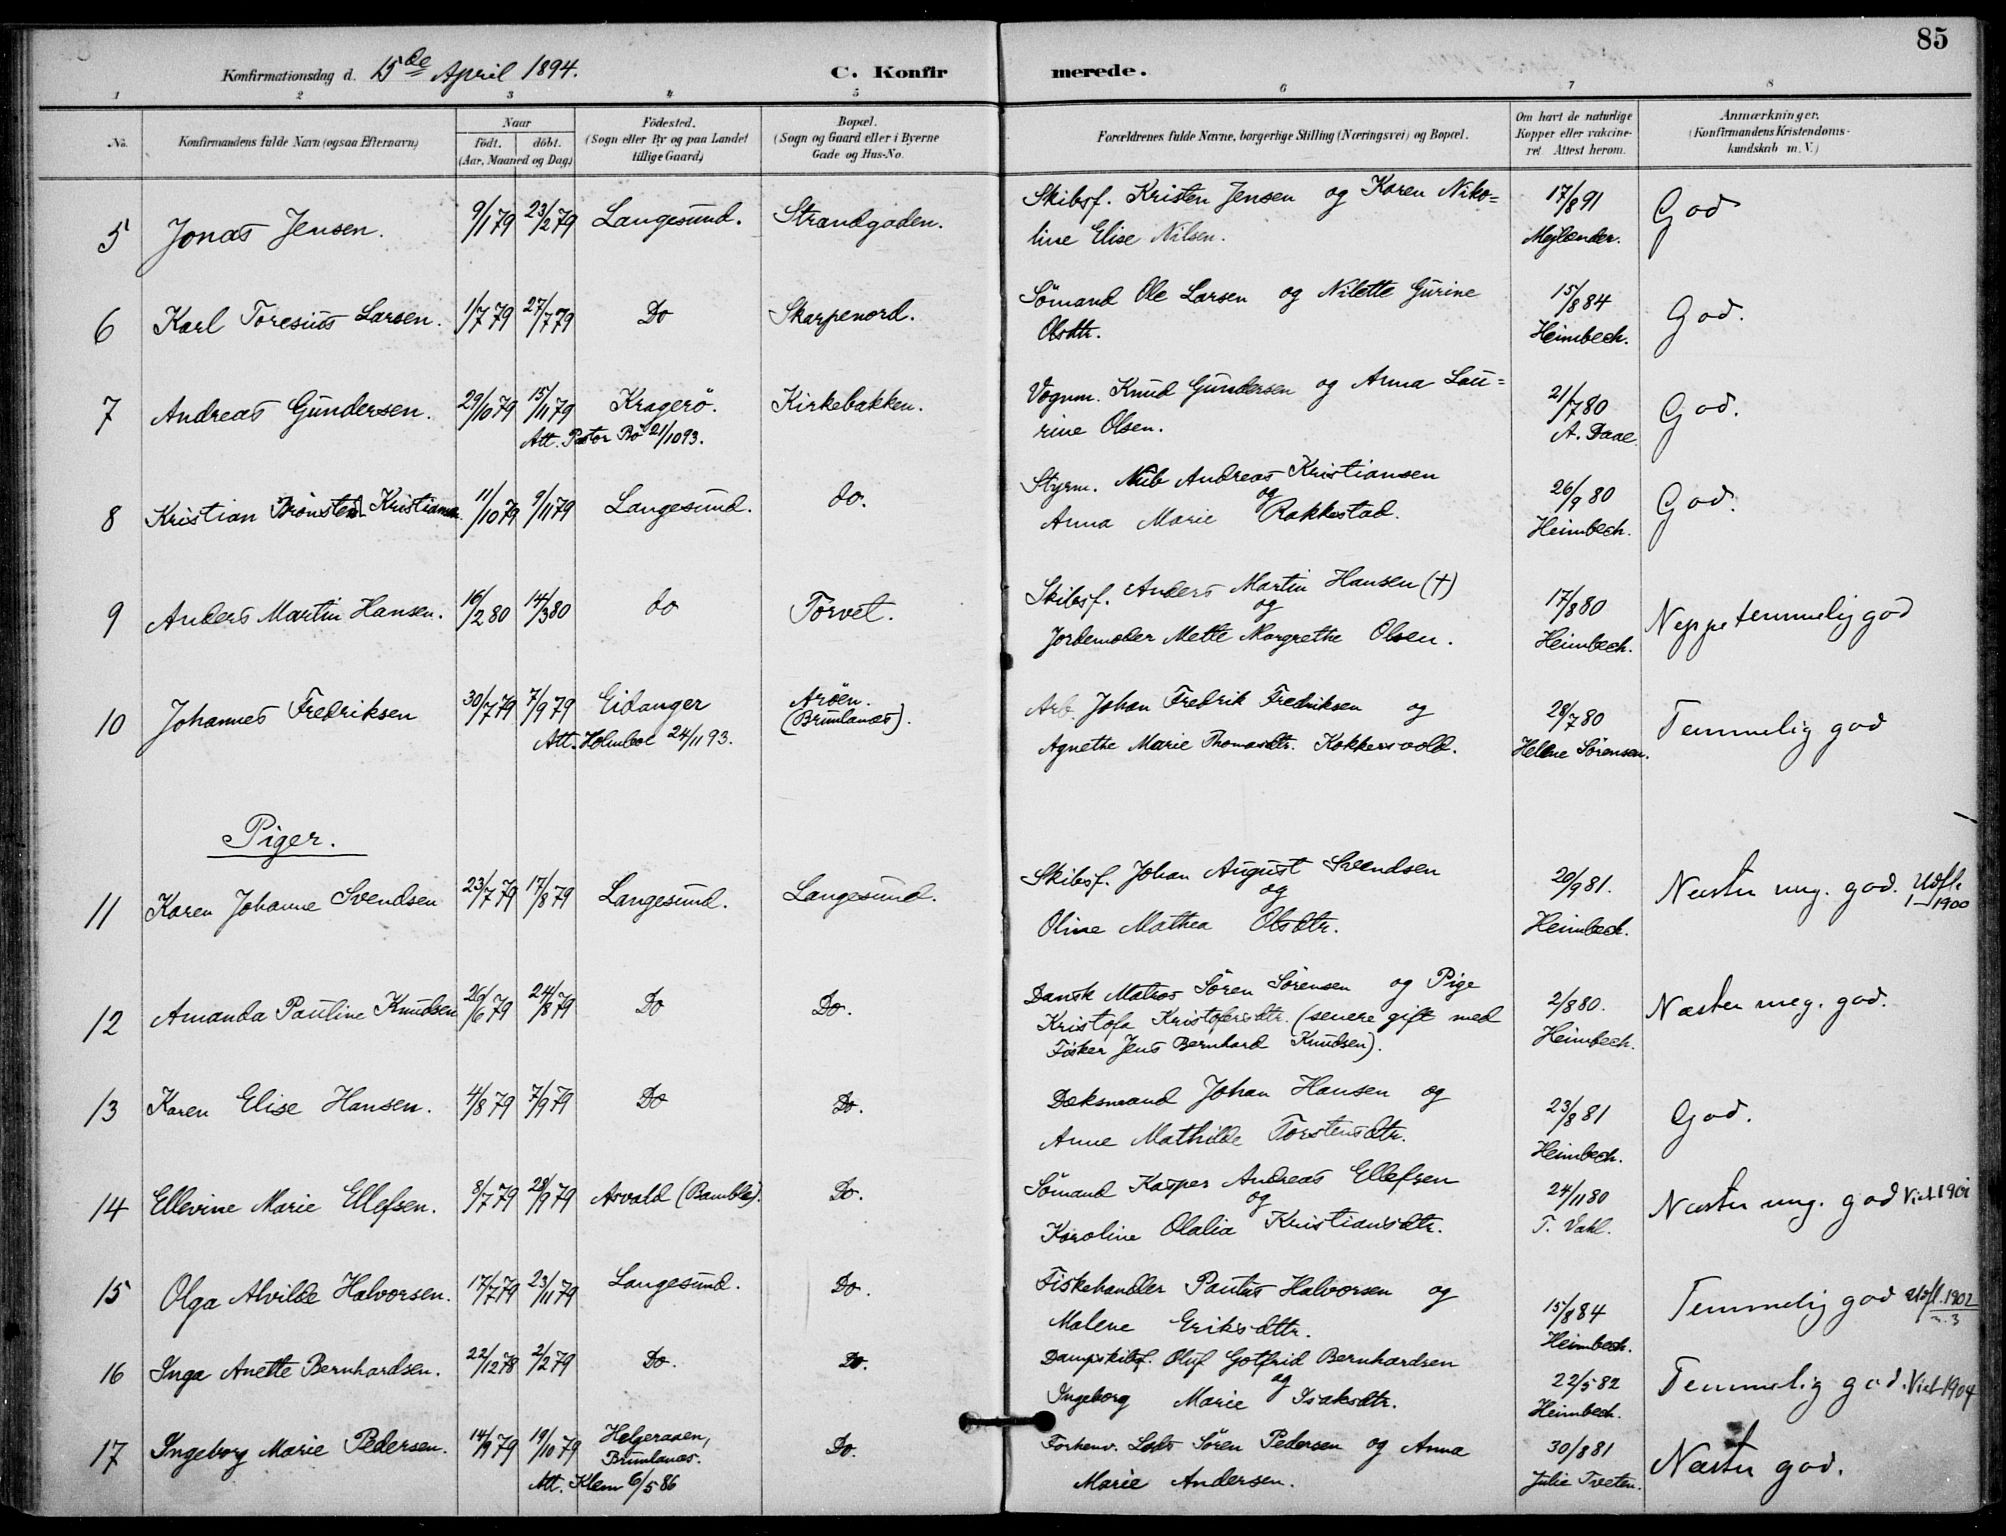 85
Konfirmationsdag d. 15de April 1894. C. Konfirmerede.
1 2 3 4 5 6 7 8
No. Konfirmandens fulde Navn (ogsaa Efternavn) Naar født. døbt. (Aar, Maaned og Dag.) Födested. (Sogn eller By og paa Landet tillige Gaard.) Bopæl. (Sogn og Gaard eller i Byerne Gade og Hus-No. Forældrenes fulde Navne, borgerlige Stilling (Næringsvei) og Bopæl. Om havt de naturlige Kopper eller vakcineret Attest herom. Anmærkninger. (Konfirmandens Kristendomskundskab m. V.)
5 Jonas Jensen. 9/1 79 23/2 79 Langesund. Strandgaden. Skibsf. Kristen Jensen og Karen Niko= 17/8 91 God
line Elise Nilsen. Mejlænder.
6 Karl Toresius Larsen. 1/7 79 27/7 79 Do Skarpenord. Sömand Ole Larsen og Nilette Gurine 15/8 84 God.
Olsdtr. Heimbech.
7 Andreas Gundersen. 29/10 79 15/11 79 Kragerö. Kirkebakken. Vognm. Knud Gundersen og Anna Lau= 21/7 80 God.
Att. Pastor Bö 21/10 93. rine Olsen. A. Daae.
8 Kristian Brönsted Kristiansen 11/10 79 9/11 79 Langesund. do. Styrm. Nub Andreas Kristiansen 26/9 80 God.
og
Anna Marie Rakkestad. Heimbech.
9 Anders Martin Hansen. 16/2 80 14/3 80 do Torvet. Skibsf. Anders Martin Hansen (†) 17/8 80 Neppe temmelig god
og
Jordemoder Mette Margrethe Olsen. Heimbech.
10 Johannes Fredriksen 30/7 79 7/9 79 Eidanger Aröen. (Brunlanæs). Arb. Johan Fredrik Fredriksen og 28/7 80 Temmelig god
Att. Holmboe 24/11 93. Agnethe Marie Thomasdtr. Kokkersvold. Helene Sörensen.
Piger.
11 Karen Johanne Svendsen 23/7 79 17/8 79 Langesund. Langesund. Skibsf. Johan August Svendsen 20/9 81. Næsten meg. god. Udfl. 1900
og
Oline Mathea Olsdtr. Heimbech.
12 Amanda Pauline Knudsen 26/6 79 24/8 79 Do Do. Dansk Matros Sören Sörensen og Pige 2/8 80. Næsten meg. god.
Kristofa Kristofersdtr. (senere gift med Heimbech.
Fisker Jens Bernhard Knudsen).
13 Karen Elise Hansen. 4/8 79 7/9 79 Do Do. Dæksmand Johan Hansen og 23/8 81 God.
Anne Mathilde Torstensdtr. Heimbech.
14 Ellevine Marie Ellefsen. 8/7 79 28/9 79 Asvald (Bamble). Do. Sömand Kasper Andreas Ellefsen 24/11 80 Næsten meg. god Viet 1901
og
Karoline Olalia Kristiansdtr. T. Vahl.
15 Olga Alvilde Halvorsen. 17/7 79 23/11 79 Langesund. Do. Fiskehandler Paulus Halvorsen og 15/8 84 Temmelig god Udfl. 1902
Malene Eriksdttr. Heimbech.
16 Inga Anette Bernhardsen. 22/12 78 2/2 79 Do. Do. Dampskibsf. Oluf Gotfrid Bernhardsen 22/5 82 Temmelig god. Viet 1904
og
Ingeborg Marie Isaksdtr. Heimbech.
17 Ingeborg Marie Pedersen. 14/9 79 19/10 79 Helgeraaen, Brunlanæs. Do. Forhenv. Lods Sören Pedersen og Anna 30/8 81 Næsten god.
Att. Klem 6/5 86 Marie Andersen. Julie Tveten.